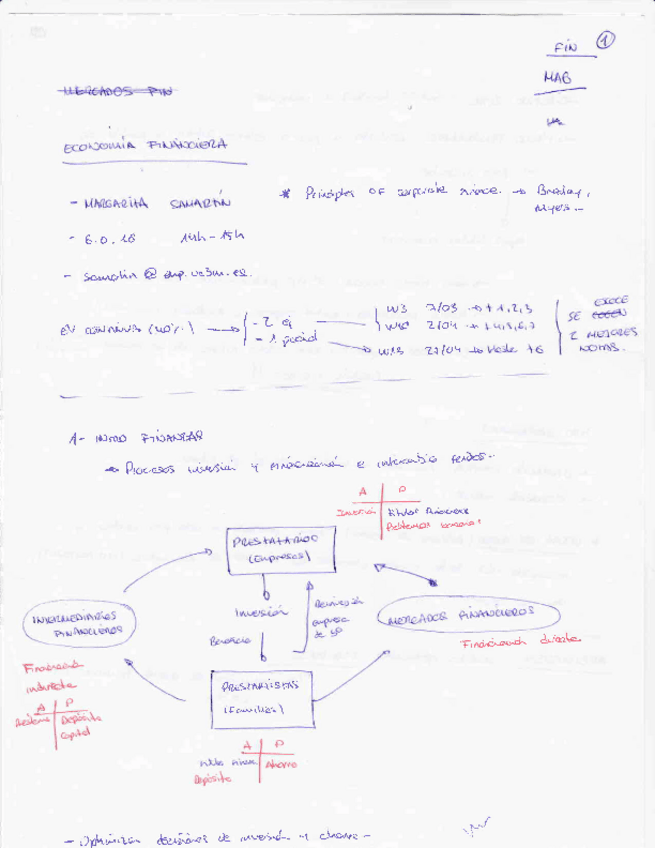 FIN 1
MAG
MERCADOS FIN
ECONOMÍA FINANCIERA
- MARGARITA SAMARTÍN
* Principles OF corporate finance. → Brealey,
Myers -
- 6.0.18 14h - 15h
- samartin @ emp.uc3m.es.
EV CONTINUA (40%) → - 2 ej
- 1 parcial
W3 7/03 → t 1,2,3
2/04 → t 4,5,6,7
W13 27/04 → Hasta t6
SE COGEN ESCOGE
2 MEJORES
NOTAS.
1- INTRO FINANZAS
→ Procesos inversión y financiación e intercambio fondos -
A P
Inversión títulos financiera
Préstamos bancarios
PRESTATARIOS
(Empresas)
INTERMEDIARIOS
FINANCIEROS
Inversión
Beneficio
empresa
MERCADOS FINANCIEROS
Financiación directa
Financiación
indirecta
A P
Préstamo Depósito
Capital
PRESTAMISTAS
(Familias)
A P
Ahorro
Depósito
- Optimizar decisiones de inversión y